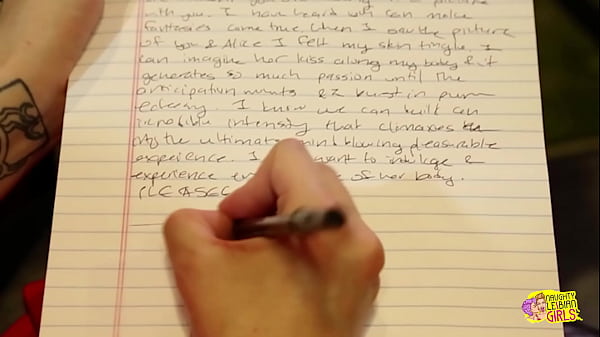 with you. I have heard you can make
fantasies come true. When I saw the picture
of you & Alice I felt my skin tingle. I
can imagine her kiss along my body & it
generates so much passion until the
anticipation mounts & I burst in pure
ecstasy. I know we can built an
incredible intensity that climaxes
the ultimate mind blowing pleasurable
experience. I want to indulge &
experience of her body.
NAUGHTY
LESBIAN
GIRLS